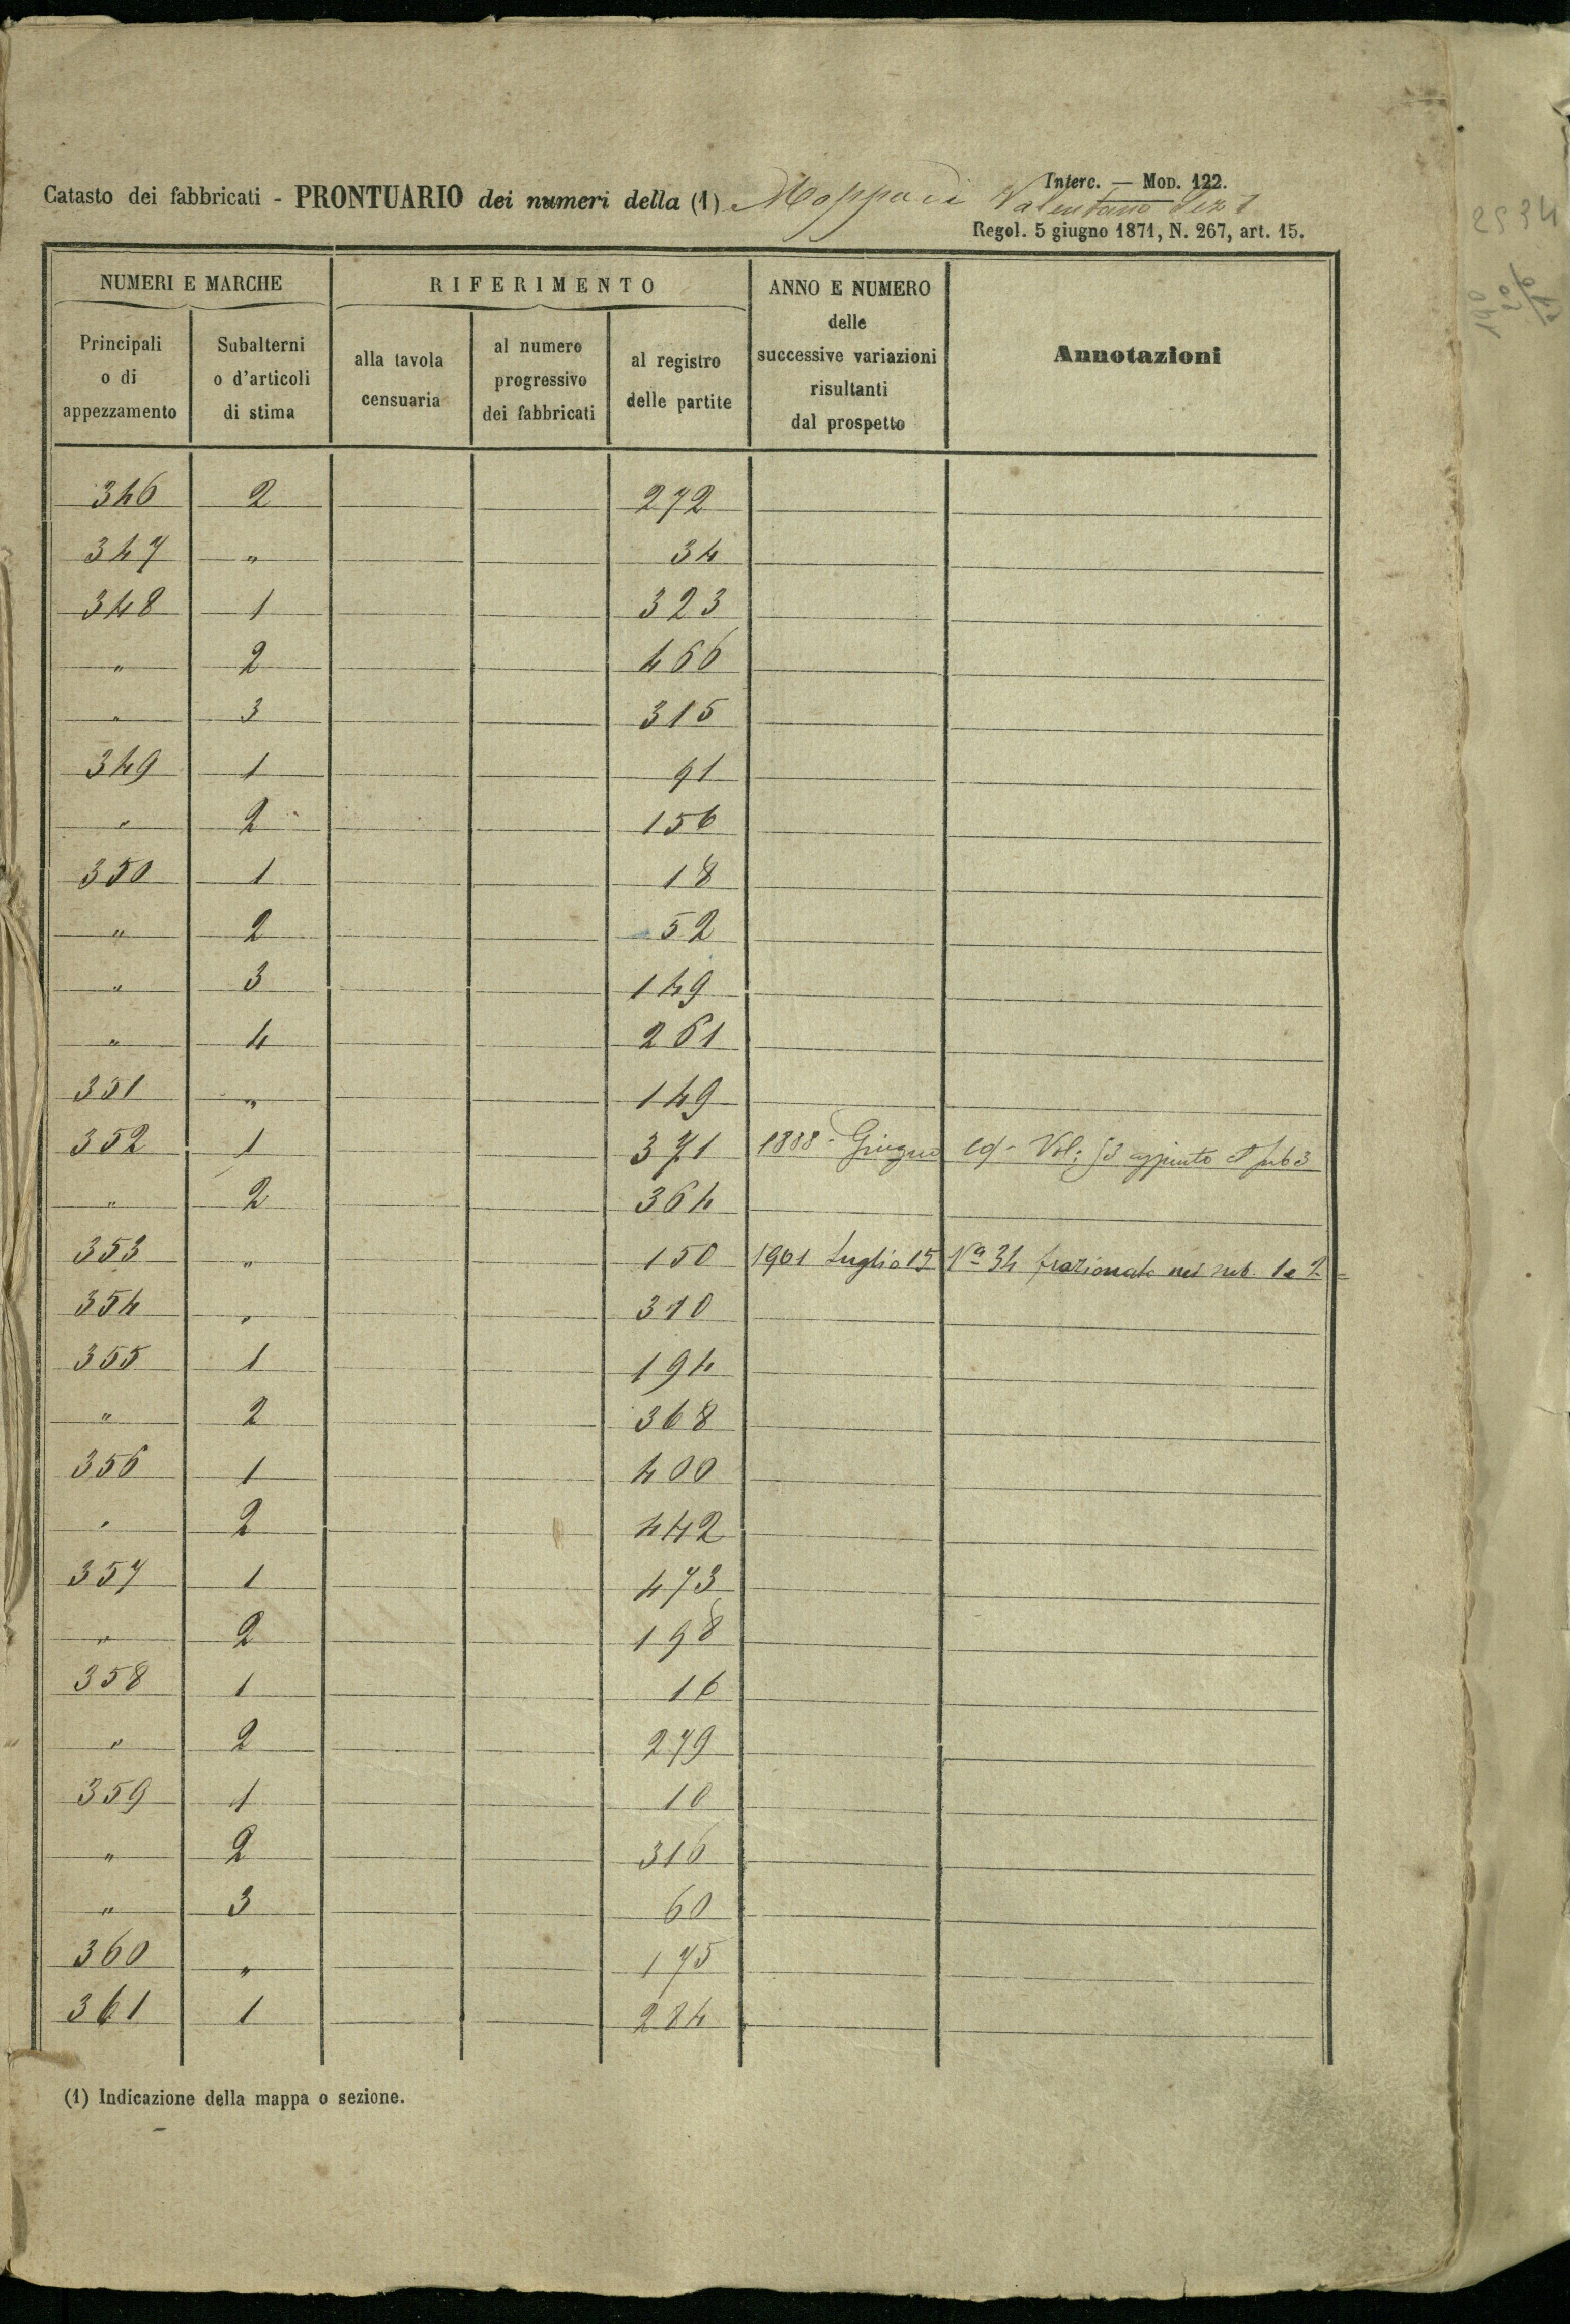 Interc. — Mod. 122.
Catasto dei fabbricati - PRONTUARIO dei numeri della (1) Mappa di Valentano Sez 1
Regol. 5 giugno 1871, N. 267, art. 15.
NUMERI E MARCHE RIFERIMENTO ANNO E NUMERO delle successive variazioni risultanti dal prospetto Annotazioni
Principali o di appezzamento Subalterni o d'articoli di stima alla tavola censuaria al numero progressivo dei fabbricati al registro delle partite
346 2 272
347 " 34
348 1 323
" 2 466
" 3 315
349 1 91
" 2 156
350 1 18
" 2 52
" 3 149
" 4 261
351 " 149
352 1 371 1888 - Giugno Vol: aggiunto sub 3
" 2 364
353 " 150 1901 Luglio 15 Na 34 frazionato nei sub. 1 e 2
354 " 310
355 1 194
" 2 368
356 1 400
" 2 442
357 1 473
" 2 198
358 1 16
" 2 279
359 1 10
" 2 316
" 3 60
360 " 175
361 1 284
(1) Indicazione della mappa o sezione.
2534